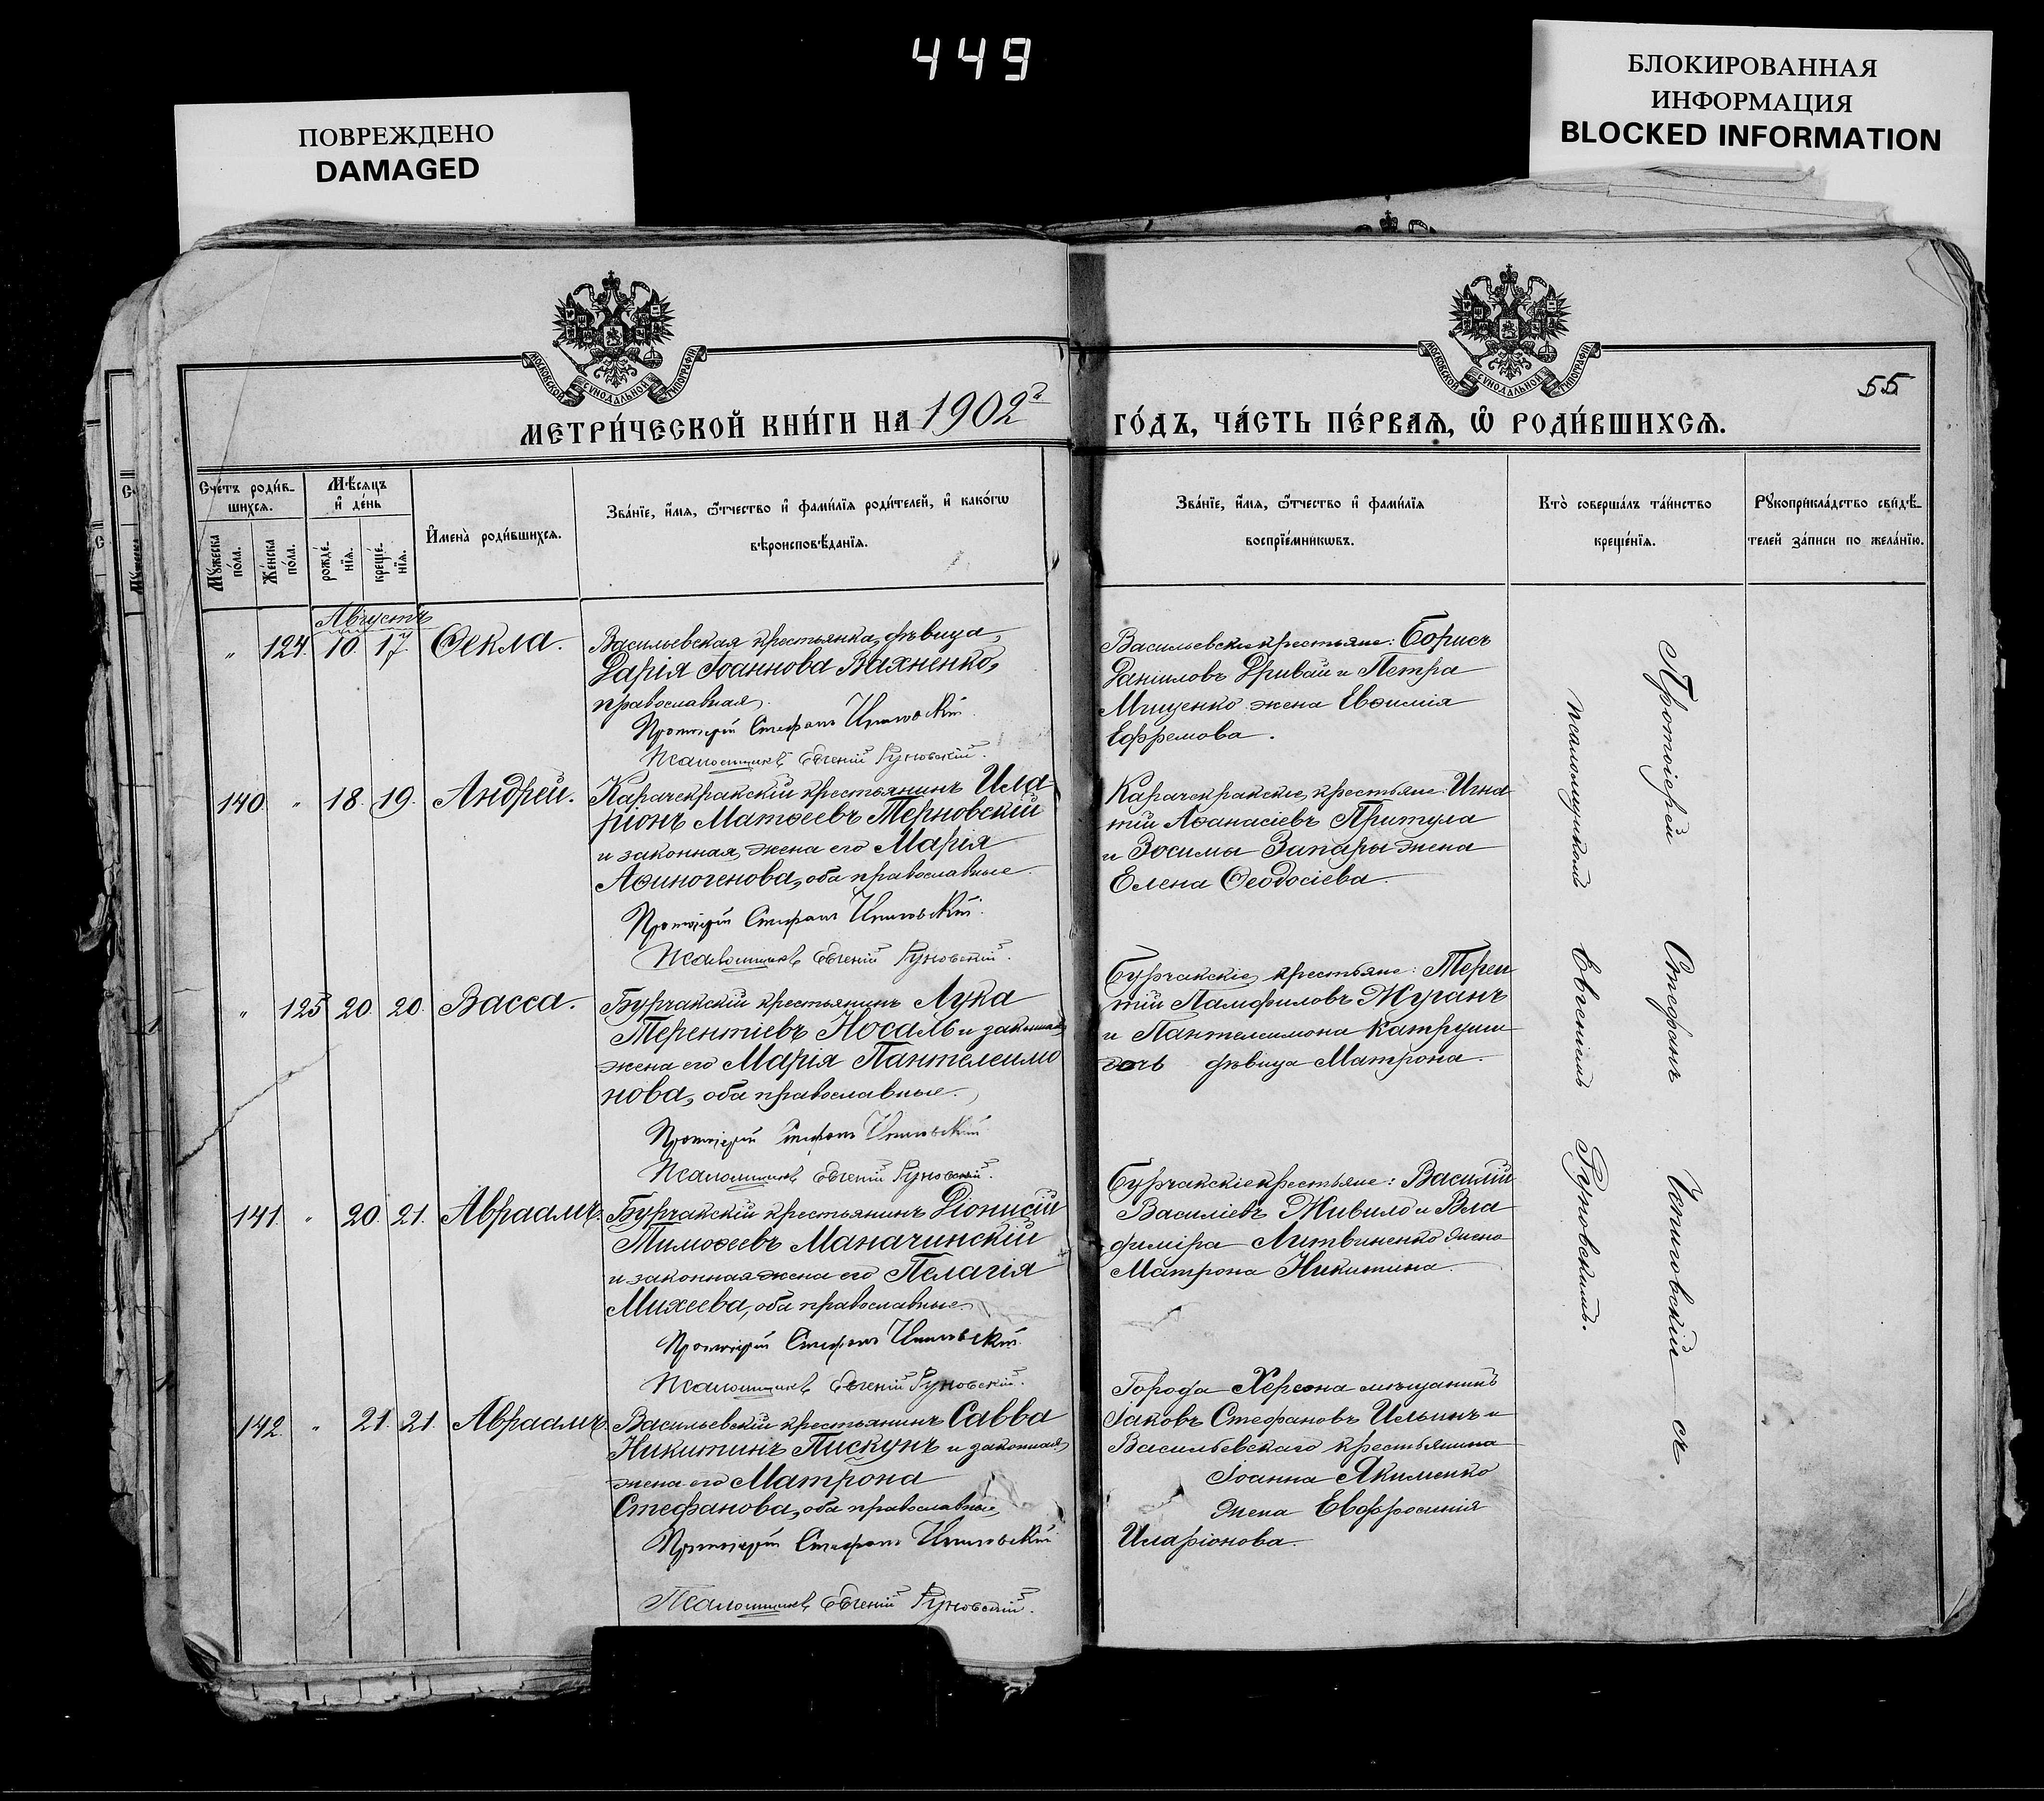 449
ПОВРЕЖДЕНО
DAMAGED
БЛОКИРОВАННАЯ
ИНФОРМАЦИЯ
BLOCKED INFORMATION
МОСКОВСКОЙ СѴНОДАЛЬНОЙ ТИПОГРАФІИ
МОСКОВСКОЙ СѴНОДАЛЬНОЙ ТИПОГРАФІИ
55
МЕТРИ́ЧЕСКОЙ КНИ́ГИ НА 1902й
ГО́ДЪ, ЧА́СТЬ ПЕ́РВАѦ, Ѽ РОДИ́ВШИХСѦ.
Сче́тъ роди́в-
шихсѧ.
Мꙋ́жеска по́ла.
Же́нска по́ла.
Мѣ́сѧцъ
и҆ де́нь
рожде́-
нїѧ.
креще́-
нїѧ.
И҆мена̀ роди́вшихсѧ.
Зва́нїе, и҆́мѧ, ѻ҆́тчество и҆ фами́лїѧ роди́телей, и҆ како́гѡ
вѣроисповѣ́данїѧ.
Зва́нїе, и҆́мѧ, ѻ҆́тчество и҆ фами́лїѧ
воспрїе́мникѡвъ.
Кто̀ соверша́лъ та́инство
креще́нїѧ.
Рꙋкоприкла́дство свидѣ́-
телей за́писи по жела́нїю.
Августъ
„ 124. 10. 17. Ѳекла.
Васильевская крестьянка, дѣвица,
Дарія Іоаннова Вахненко,
православная.
Протоіерей Стефанъ Чепиговскій
Псаломщикъ Евгеній Руновскій.
Васильевскіе крестьяне: Борисъ
Даніиловъ Дривай и Петра
Мищенко жена Евѳимія
Ефремова.
140. „ 18. 19. Андрей.
Карачекракскій крестьянинъ Ила-
ріонъ Матѳеевъ Терновскій
и законная жена его Марія
Аѳиногенова, оба православные.
Протоіерей Стефанъ Чепиговскій.
Псаломщикъ Евгеній Руновскій.
Карачекракскіе крестьяне: Игна
тій Аѳанасіевъ Притула
и Зосимы Запары жена
Елена Ѳеодосіева.
„ 125 20. 20. Васса.
Бурчакскій крестьянинъ Лука
Терентіевъ Носаль и законная
жена его Марія Пантелеимо
нова, оба православные.
Протоіерей Стефанъ Чепиговскій
Псаломщикъ Евгеній Руновскій.
Бурчакскіе крестьяне: Терен
тій Памфиловъ Жуганъ
и Пантелеимона Катруши
дочь дѣвица Матрона.
141. „ 20. 21. Авраамъ.
Бурчакскій крестьянинъ Діонисій
Тимоѳеевъ Маначинскій
и законная жена его Пелагія
Михеева, оба православные
Протоіерей Стефанъ Чепиговскій.
Псаломщикъ Евгеній Руновскій.
Бурчакскіе крестьяне: Василій
Василіевъ Живило и Вла
диміра Литвиненко жена
Матрона Никитина.
142. „ 21. 21. Авраамъ.
Васильевскій крестьянинъ Савва
Никитинъ Пискунъ и законная
жена его Матрона
Стефанова, оба православные
Протоіерей Стефанъ Чепиговскій
Псаломщикъ Евгеній Руновскій.
Города Херсона мѣщанинъ
Іаковъ Стефановъ Ильинъ и
Васильевскаго крестьянина
Іоанна Якименко
жена Евфросинія
Иларіонова.
Протоіерей Стефанъ Чепиговскій съ
псаломщикомъ Евгеніемъ Руновскимъ.